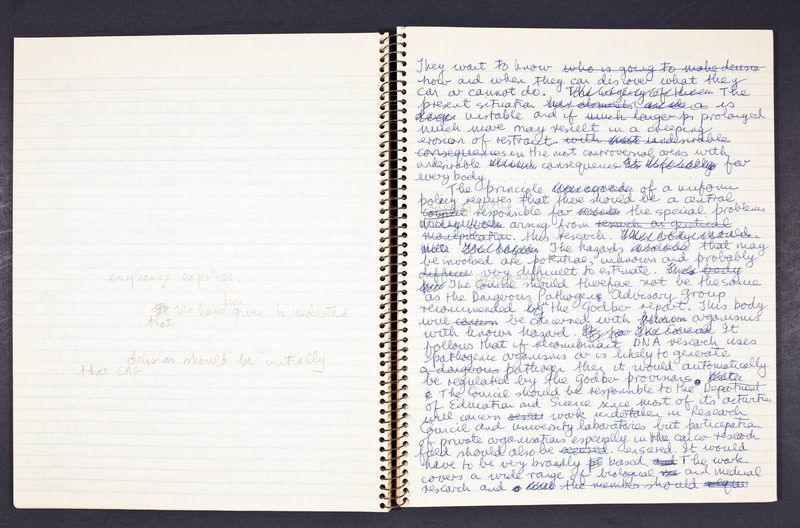 emphasize expertise.
We have been given to understand
that
decision should be initially
that CAG
They want to know who is going to make decision
how and when they can discover what they
can or cannot do. The
present situation is
danger unstable and if much longer prolonged
much more may result in a creeping
erosion of restraint with undesirable
consequences in the not controversial areas with
undesirable consequences for
everybody
The principle of a uniform
policy requires that there should be a central
council responsible for the special problems
arising from research or genetical
manipulation. this research.
The hazards that may
be involved are potential, unknown and probably
difficult very difficult to estimate. body
The Council should therefore not be the same
as the Dangerous Pathogens Advisory Group
recommended by the Godber report. This body
will concern be concerned with known organisms
with known hazard. It
follows that if recombinant DNA research uses
pathogenic organisms or is likely to generate
a dangerous pathogen then it would automatically
be regulated by the Godber provisions.
The Council should be responsible to the Department
of Education and Science since most of its activities
will concern work undertaken in Research
Council and university laboratories but participation
of private organisations especially in the cancer research
field should also be designed. It would
have to be very broadly based and The work
covers a wide range of biological and medical
research and the member should